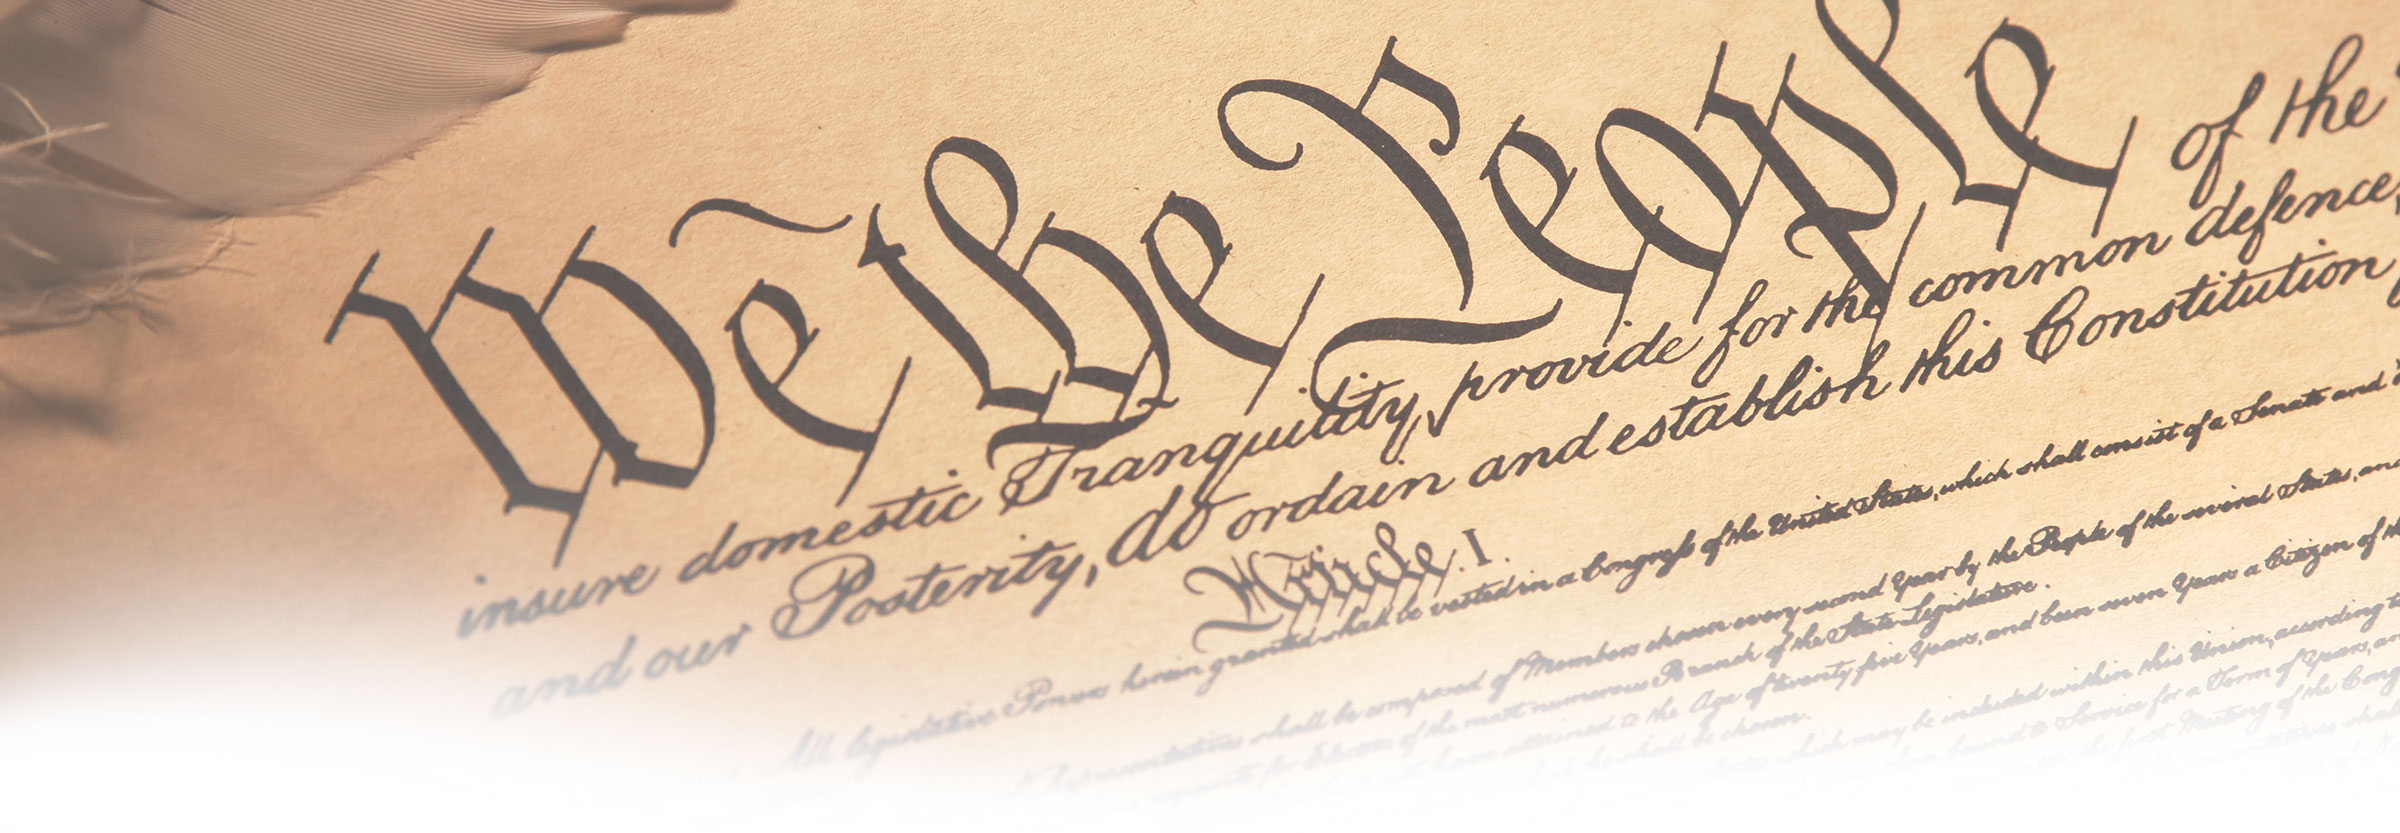 We the People of the
insure domestic Tranquility, provide for the common defence,
and our Posterity, do ordain and establish this Constitution
Article. I.
All legislative Powers herein granted shall be vested in a Congress of the United States, which shall consist of a Senate and
Representatives shall be composed of Members chosen every second Year by the People of the several States, and
requisite for Electors of the most numerous Branch of the State Legislature.
have attained to the Age of twenty five Years, and been seven Years a Citizen of the
which he shall be chosen.
which may be included within this Union, according to
those bound to Service for a Term of Years, and
after the first Meeting of the Cong